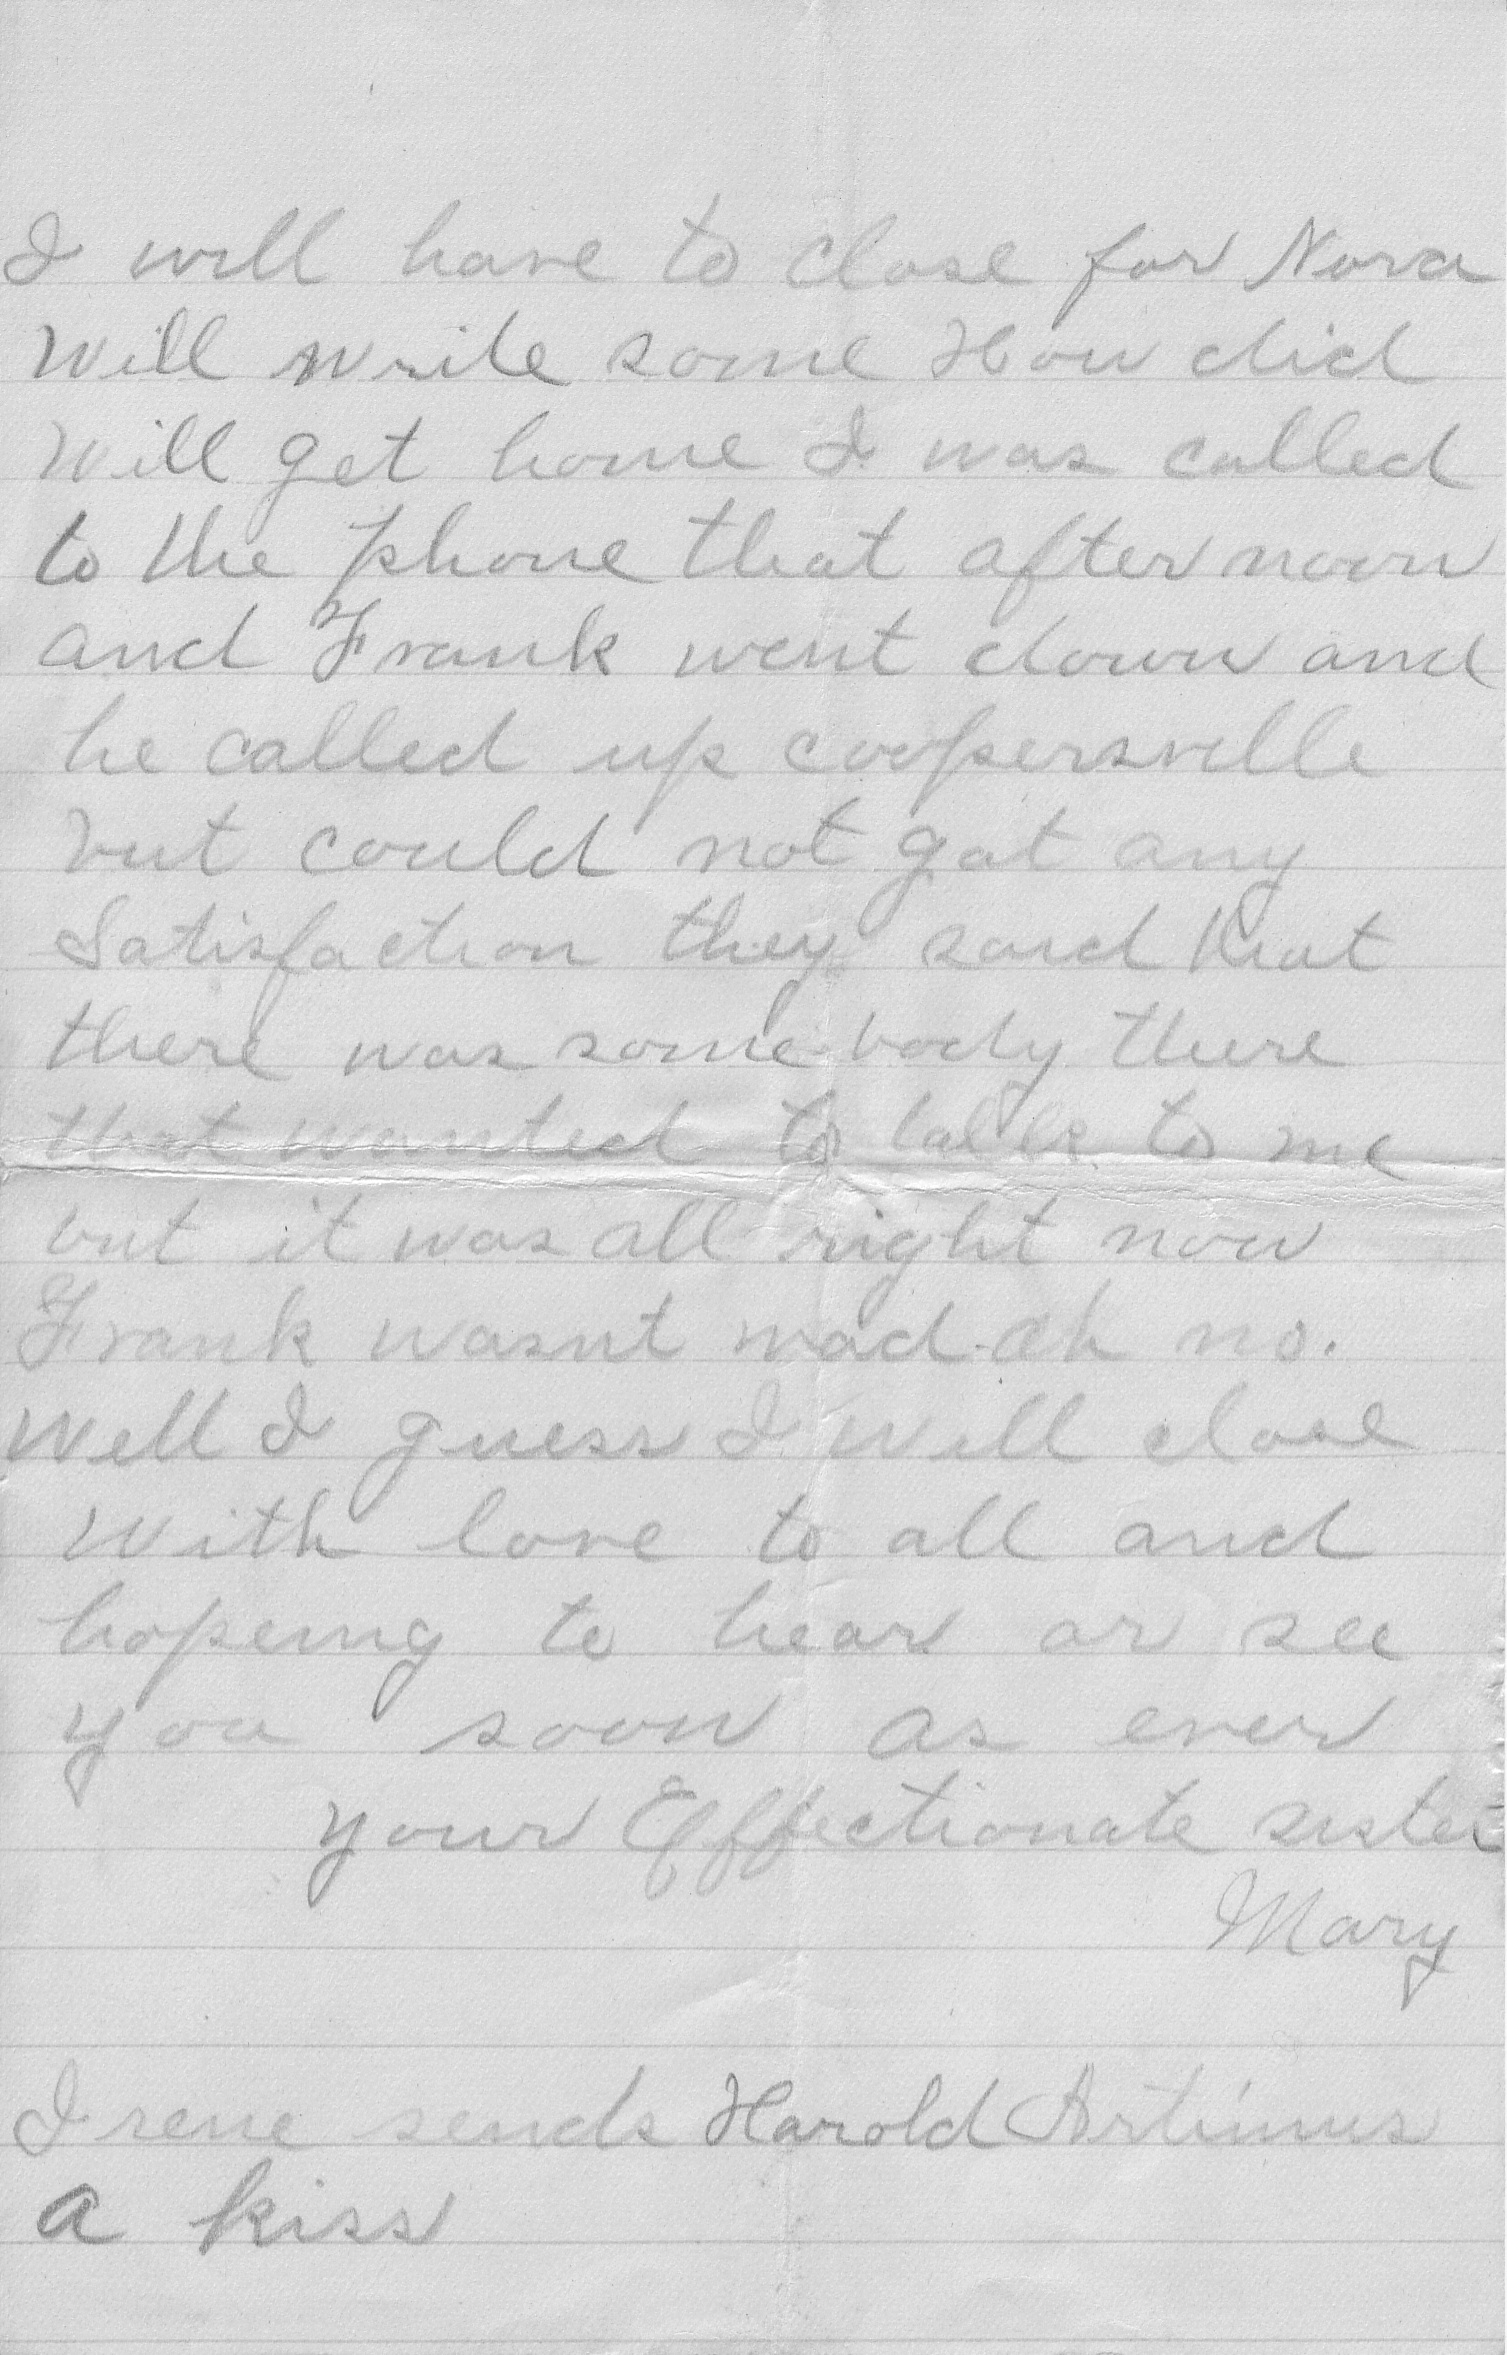 I will have to close for Nora
Will write some How did
Will get home I was called
to the phone that after noon
and Frank went down and
he called up coopersville
but could not gat any
Satisfaction they said that
there was some body there
that wanted to talk to me
but it was all right now
Frank wasnt mad oh no.
Well I guess I will close
With love to all and
hopeing to hear or see
you soon as ever
your Effectionate sister
Mary
Irene sends Harold Artimus
a kiss